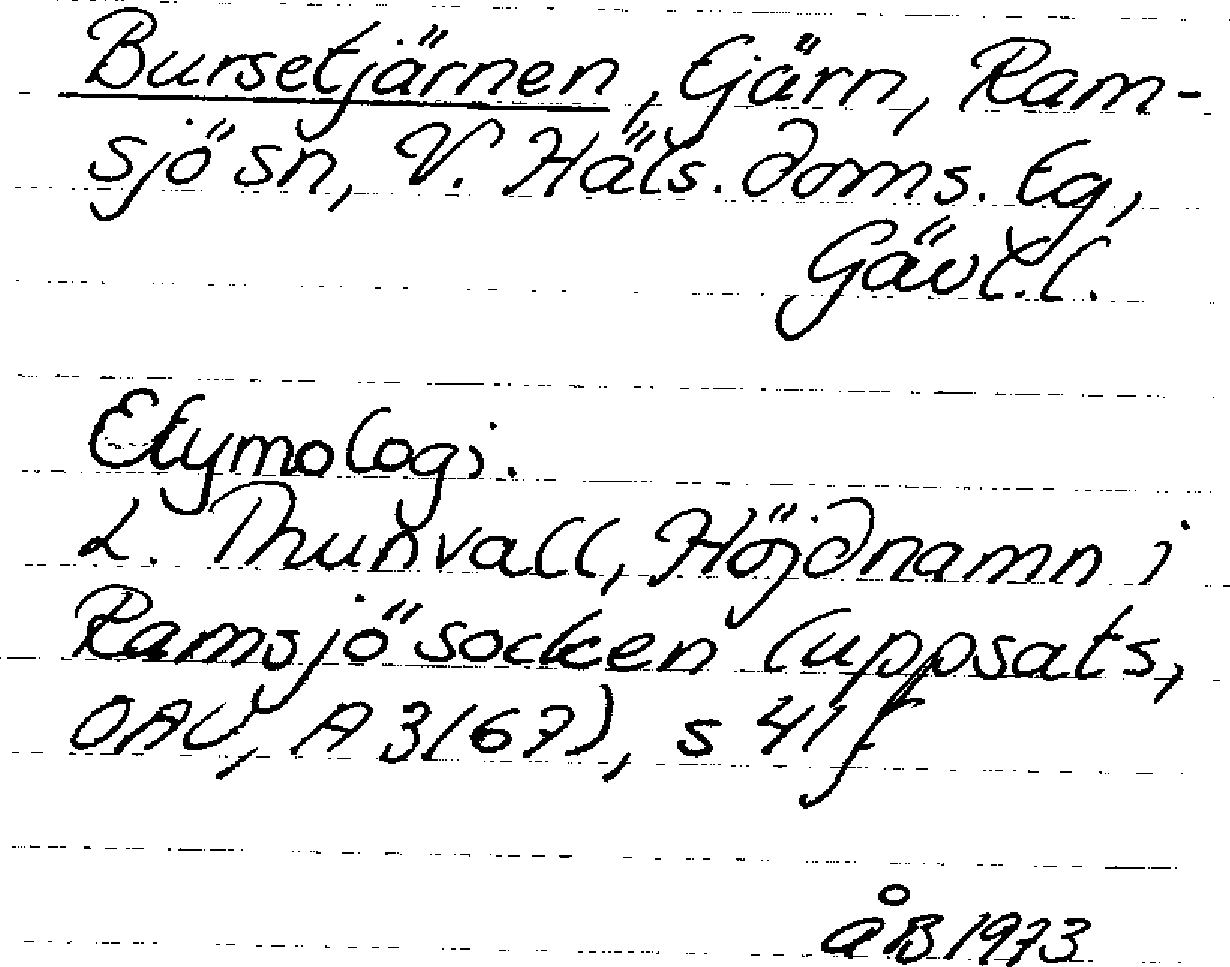 Bursetjärnen, tjärn, Ram-
sjö sn, V. Häls. doms. tg,
Gävl.l.
Etymologi.
L. Thunvall, Höjdnamn i
Ramsjö socken (uppsats,
OAU, A 3/67), s 41 f
åB 1973